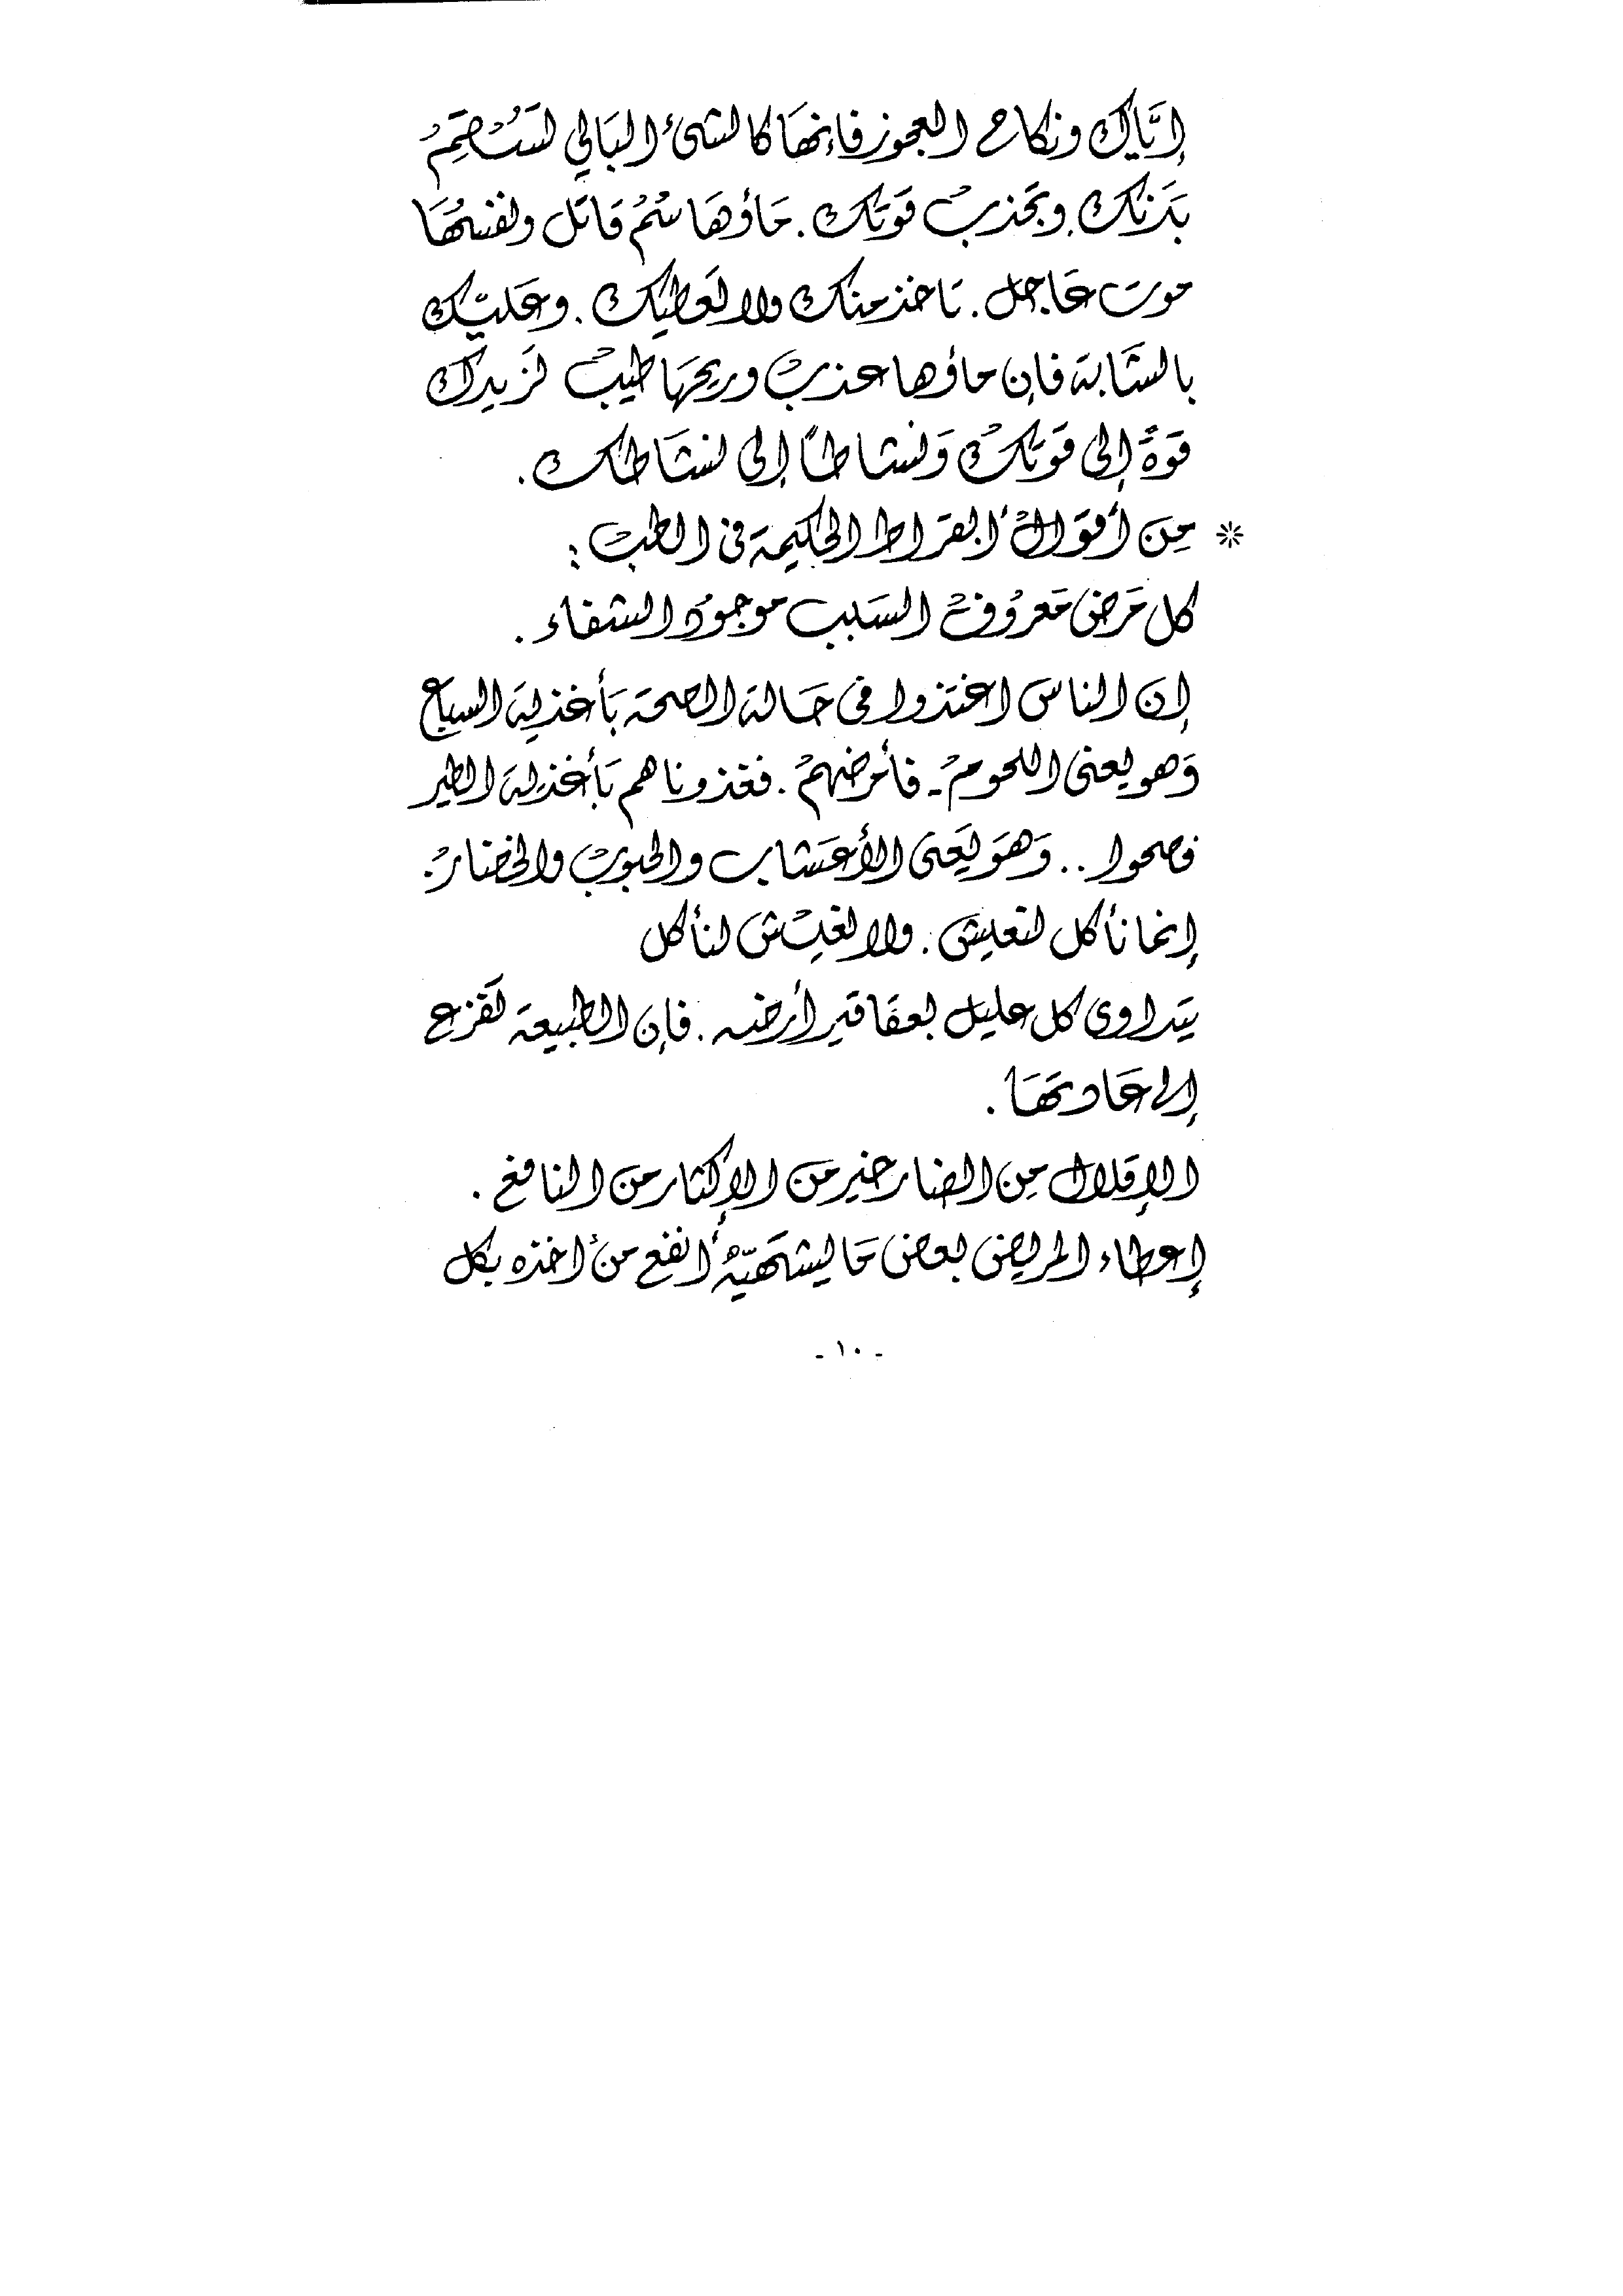 إيَّاك ونكاح العجوز فإنهَا كالشئ البَالي تسْقمُ
بَدنك. وتجذبُ قوتك. مَاؤهَا سُمُ قاتل ونفسُهَا
موت عَاجل. تاخذ منك ولا تعَطيك. وعَليْك
بالشَابة فإن ماؤها عذبْ وريحهَا طيبْ تزيدك
قوةً إلى قوتكْ وَنشاطاً إلى نشَاطك.
* مِن أقوَالْ أبقراط الحكيمة فى الطبْ:
كل مَرض مَعرُوفْ السَبب موجودُ الشفاء.
إن الناس اغتذوا فى حَالة الصحة بَأغذية السباع
وَهو يعنى اللحومْ ـ فأمرضهمْ. فغذوناهم بَأغذية الطير
فصحوا .. وَهوَ يَعنى الأعَشاب والحبوبْ والخضارْ.
إنما نأكل لنعيش. ولا نعيْش لنأكل
يتداوى كل عليل بعقاقير أرضه. فإن الطبيعة تفزع
إلى عَادتهَا.
الإقلال مِن الضار خير من الإكثار من النافع.
إعطاء المريض بعض مَا يشتَهيّهُ أنفع منْ اخذه بكل
- ١٠ -